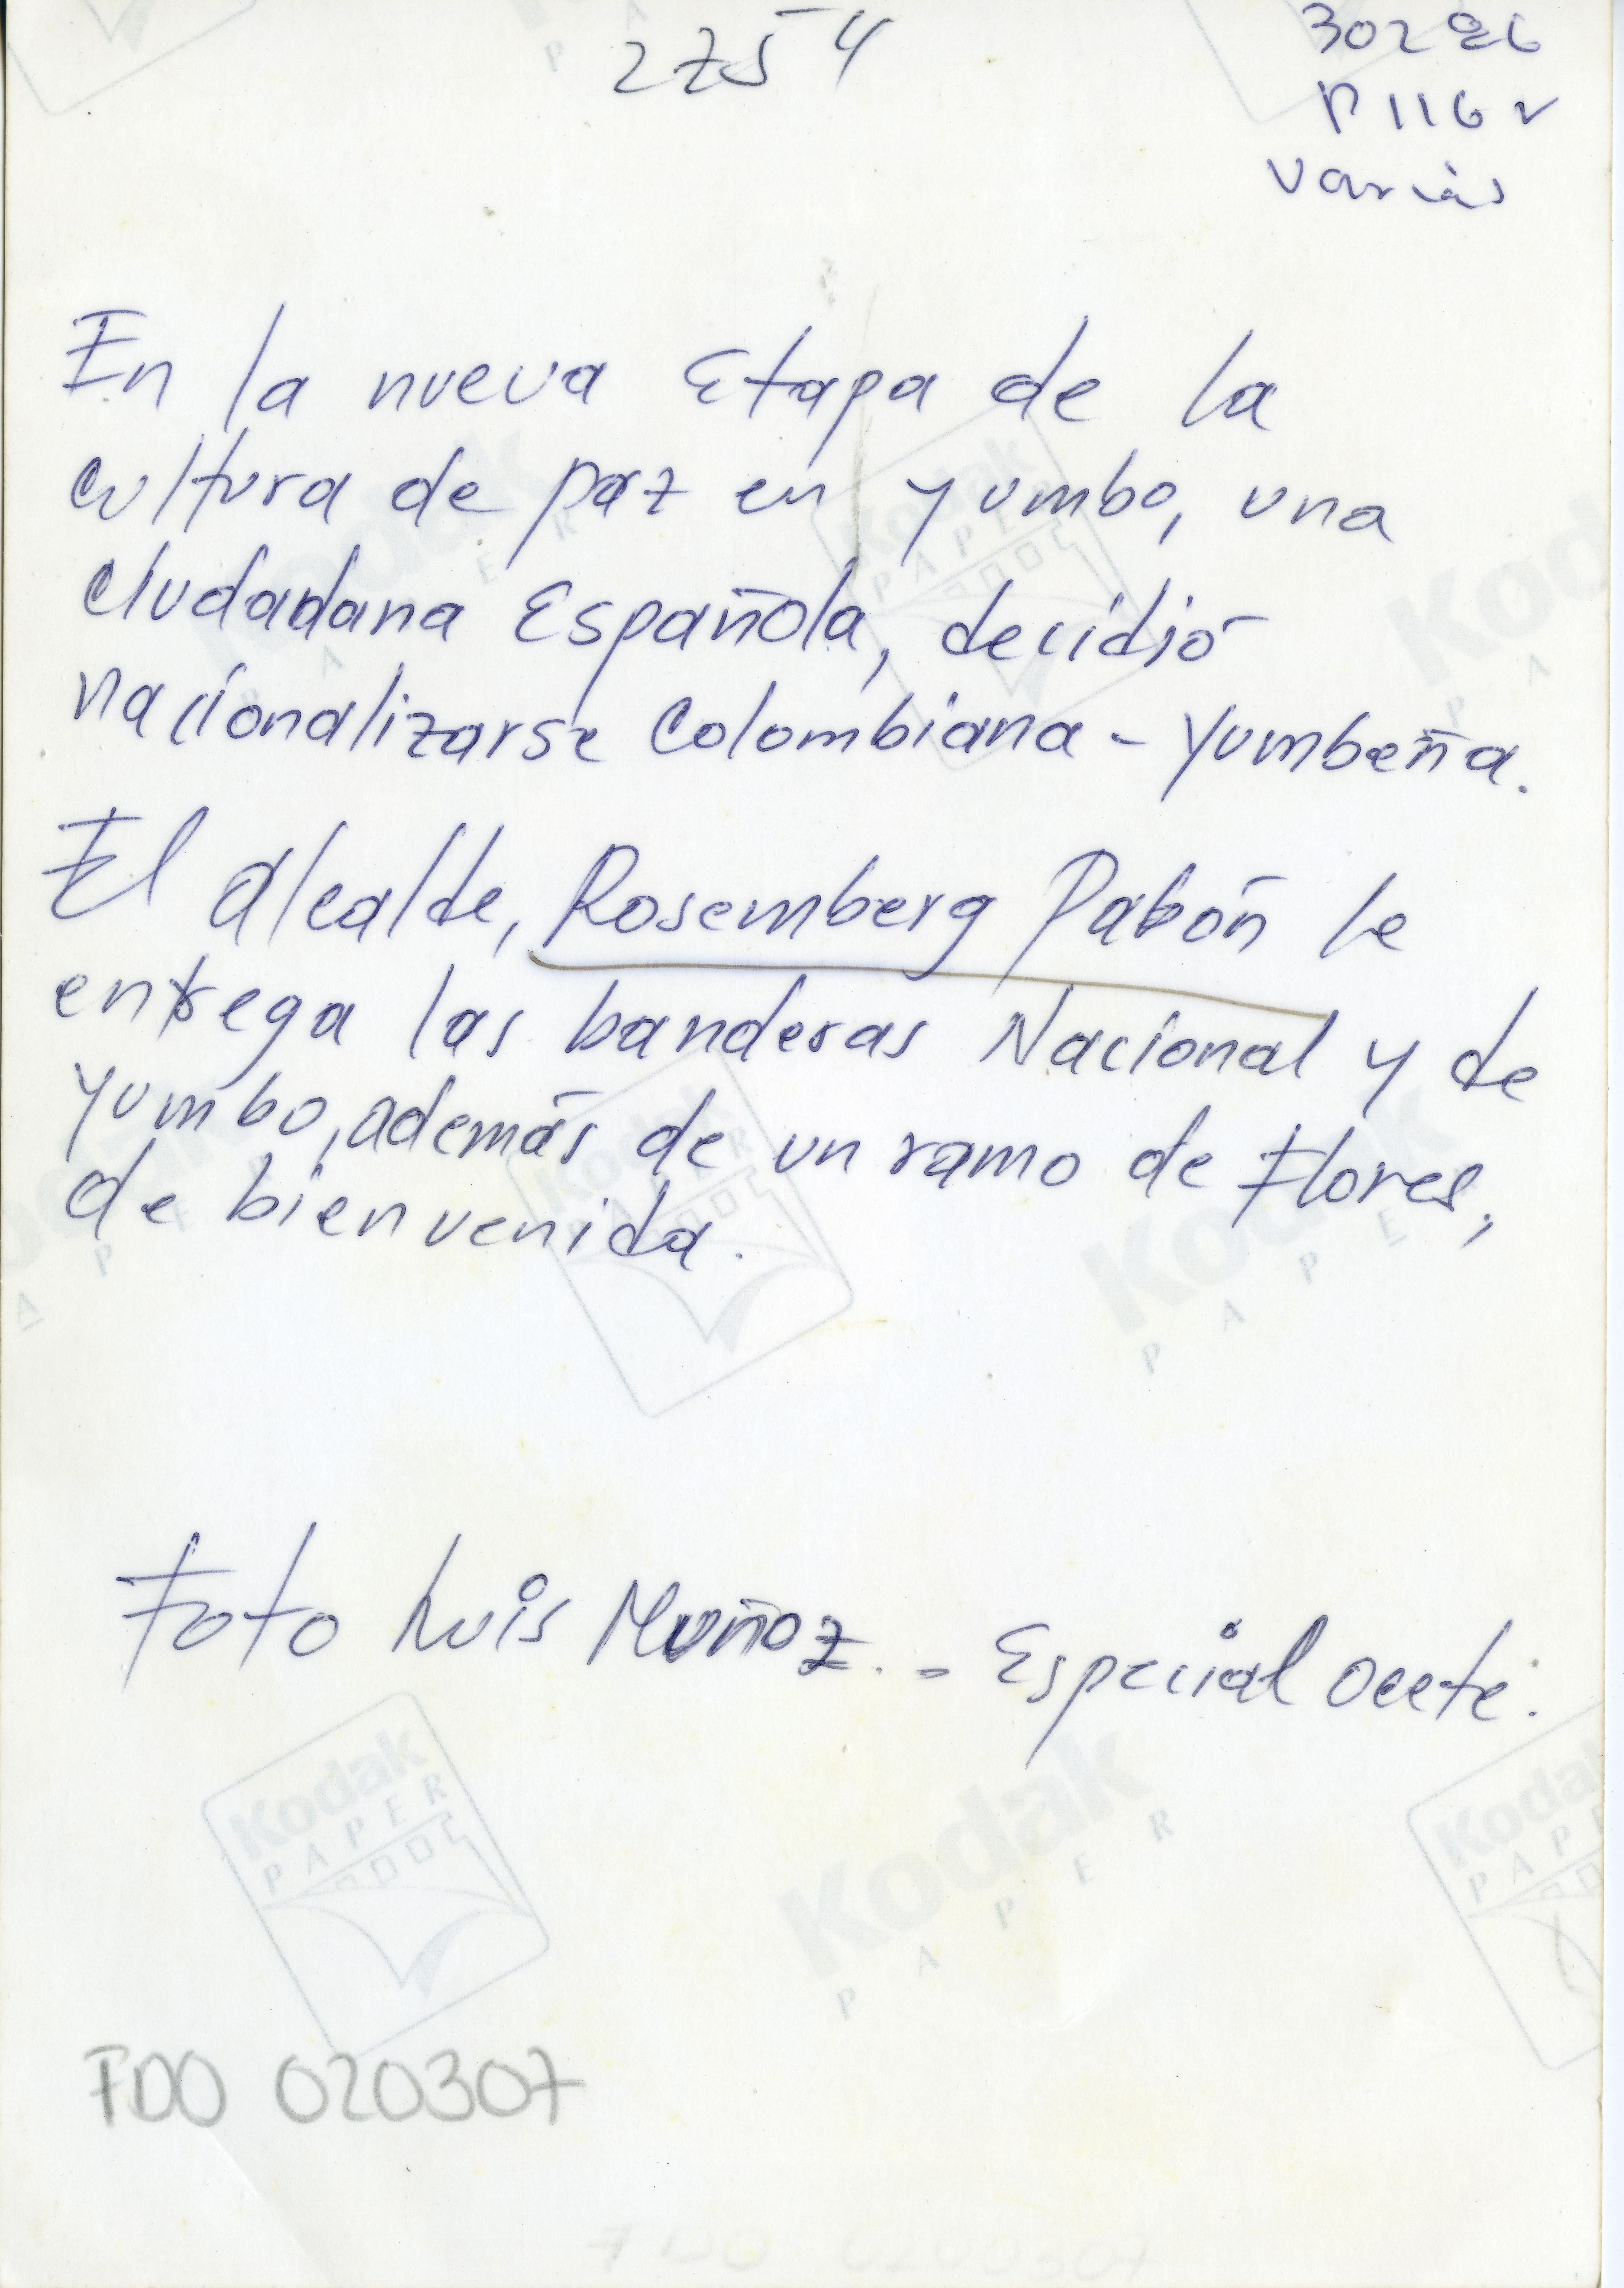 2754
302
P 116 v
varias
En la nueva Etapa de la
cultura de paz en yumbo, una
ciudadana Española, decidió
nacionalizarse Colombiana - yumbeña.
El alcalde, Rosemberg Pabón le
entrega las banderas Nacional y de
yumbo, además de un ramo de Flores,
de bienvenida.
Foto Luis Muñoz. - Especial Occte.
FDO 020307
Kodak
PAPER